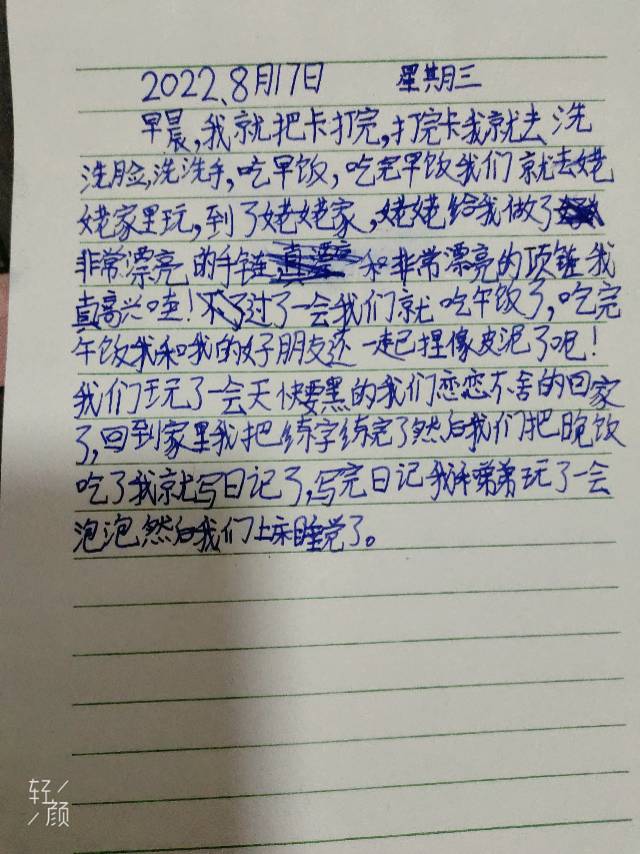 2022、8月17日 星期三
早晨,我就把卡打完,打完卡我就去洗
洗脸,洗洗手,吃早饭,吃完早饭我们就去姥
姥家里玩,到了姥姥家,姥姥给我做了
非常漂亮的手链,和非常漂亮的项链我
真高兴哇!不过了一会我们就吃午饭了,吃完
午饭我和我的好朋友还一起捏像皮泥了呢!
我们玩了一会天快要黑的我们恋恋不舍的回家
了,回到家里我把练字练完了然后我们把晚饭
吃了我就写日记了,写完日记我和弟弟玩了一会
泡泡然后我们上床睡觉了。
轻
颜